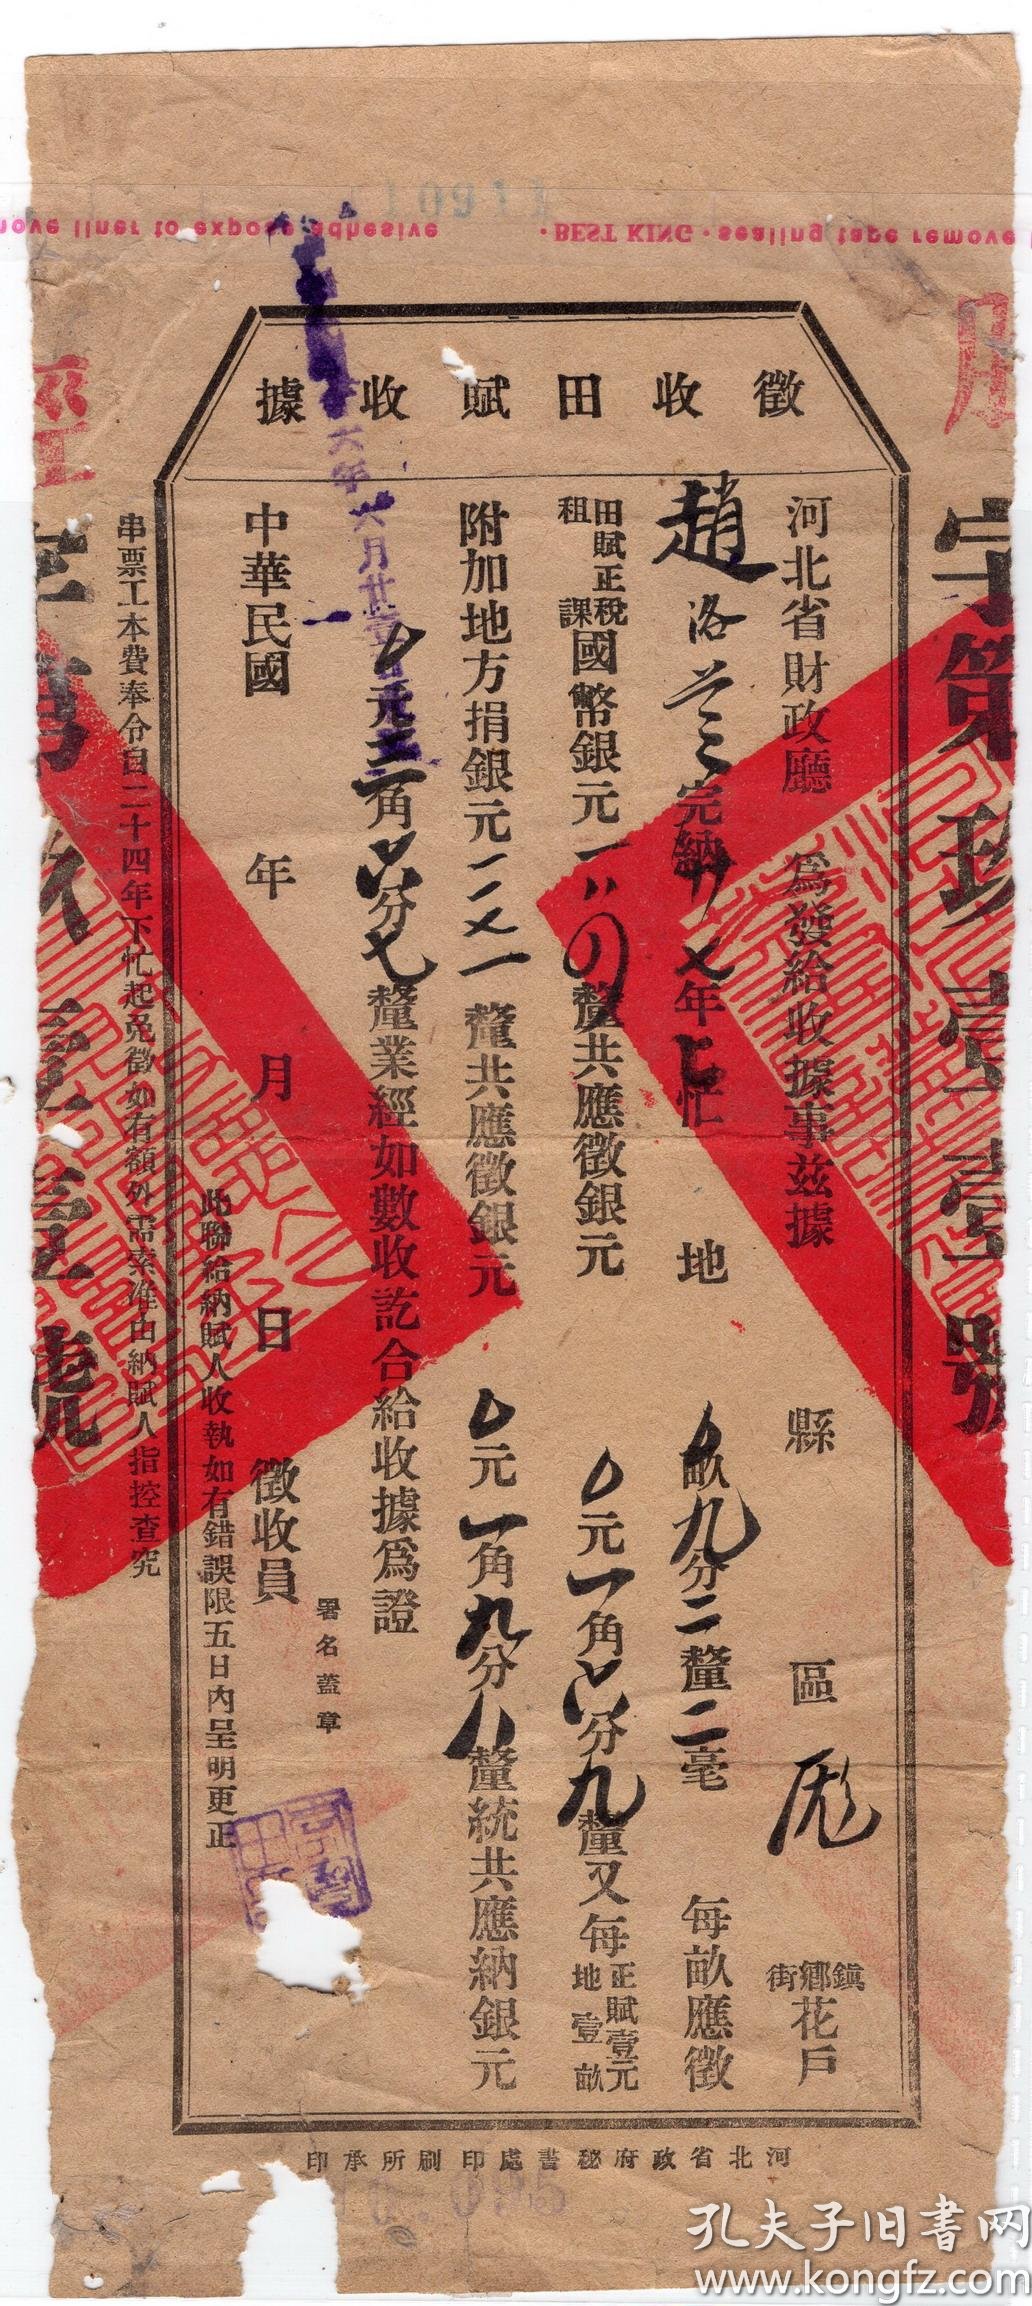 10911
remove liner to expose adhesive · BEST KING · sealing tape remove
徵收田賦收據
字第玖壹壹號
河北省財政廳 爲發給收據事茲據 縣 區 彪 鎮鄉街 花戶
趙洛 完納 年 忙 地 畝九分二釐二毫 每畝應徵
田賦正稅租課國幣銀元 釐共應徵銀元 0元一角六分九釐又每正賦壹元地壹畝
附加地方捐銀元 釐共應徵銀元 0元一角九分八釐統共應納銀元
0元三角六分七釐業經如數收訖合給收據爲證
六年六月廿壹
署名蓋章
中華民國 年 月 日 徵收員
此聯給納賦人收執如有錯誤限五日內呈明更正
串票工本費奉令自二十四年下忙起免徵如有額外需索准由納賦人指控查究
河北省政府秘書處印刷所承印
孔夫子旧书网
www.kongfz.com